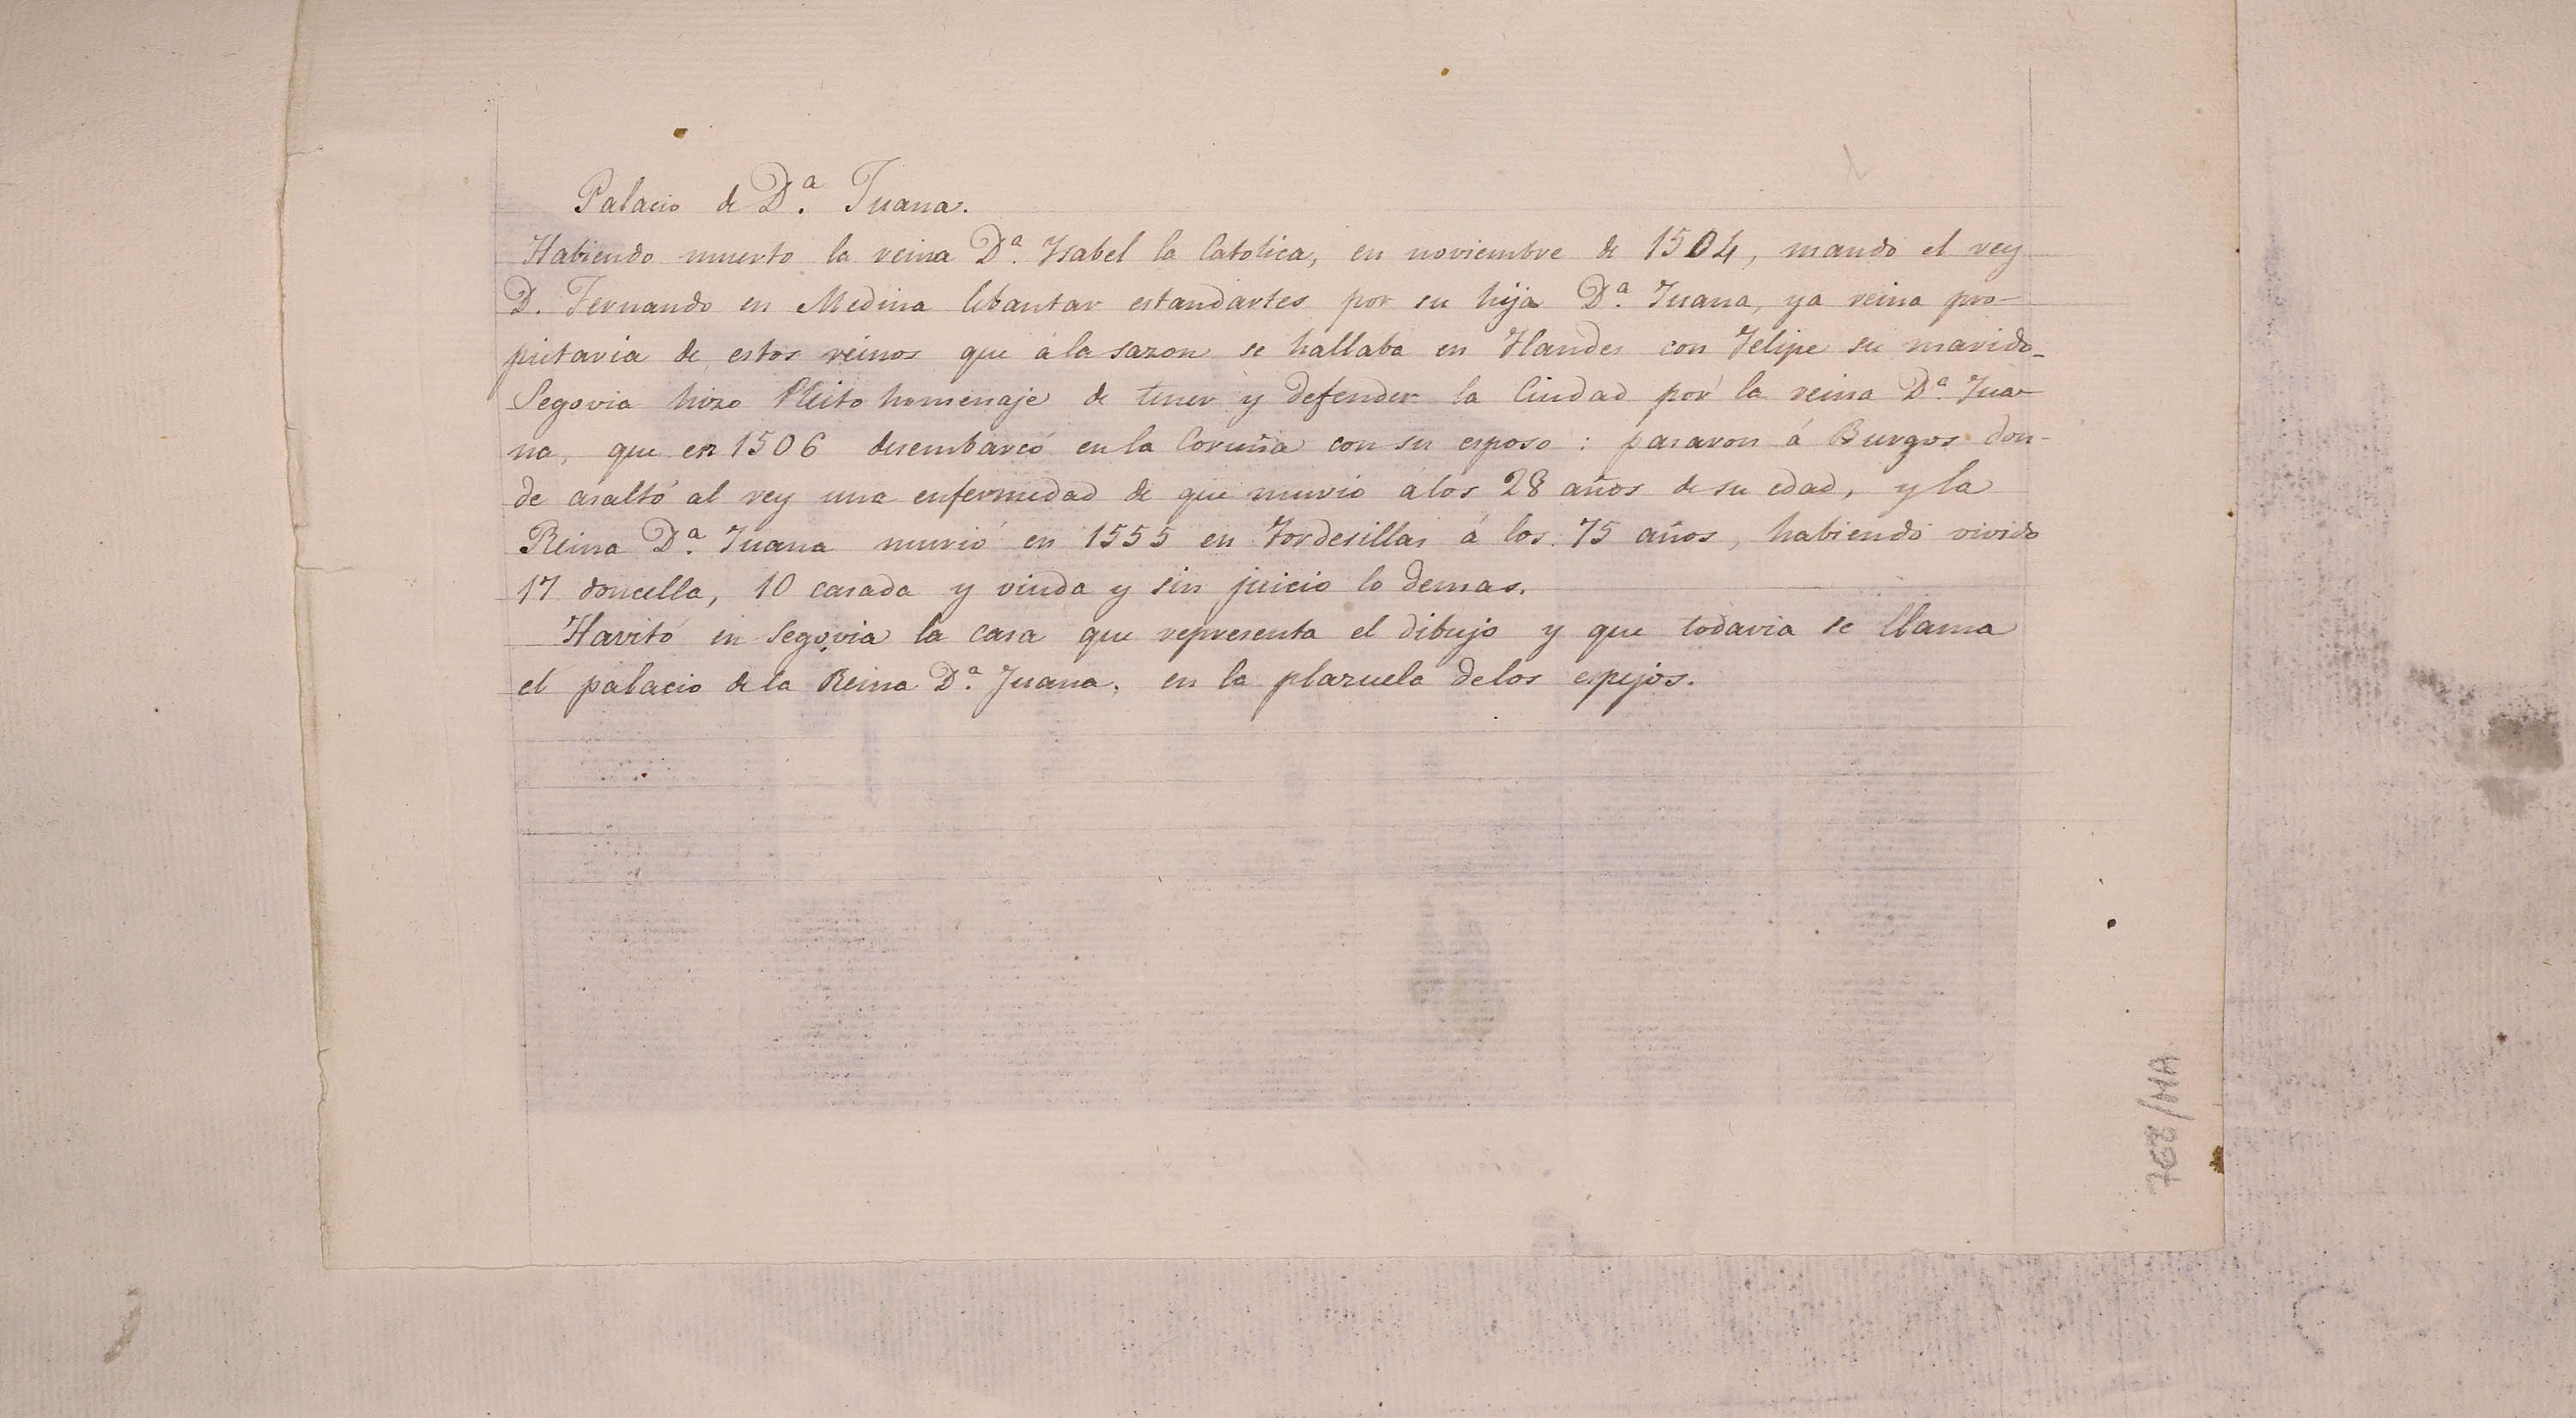 Palacio de D.ª Juana.
Habiendo muerto la reina D.ª Ysabel la Catolica, en noviembre de 1504, mandó el rey
D. Fernando en Medina lebantar estandartes por su hija D.ª Juana, ya reina pro-
pietaria de estos reinos que á la sazon se hallaba en Flandes con Felipe su marido_
Segovia hizo Pleito homenaje de tener y defender la Ciudad por la reina D.ª Jua-
na, que en 1506 desembarcó en la Coruña con su esposo: pasaron á Burgos don-
de asaltó al rey una enfermedad de que murió á los 28 años de su edad, y la
Reina D.ª Juana murió en 1555 en Tordesillas á los 75 años, habiendo vivido
17 doncella, 10 casada y viuda y sin juicio lo demas.
Havitó en Segovia la casa que representa el dibujo y que todavia se llama
el palacio de la Reina D.ª Juana, en la plazuela de los espejos.